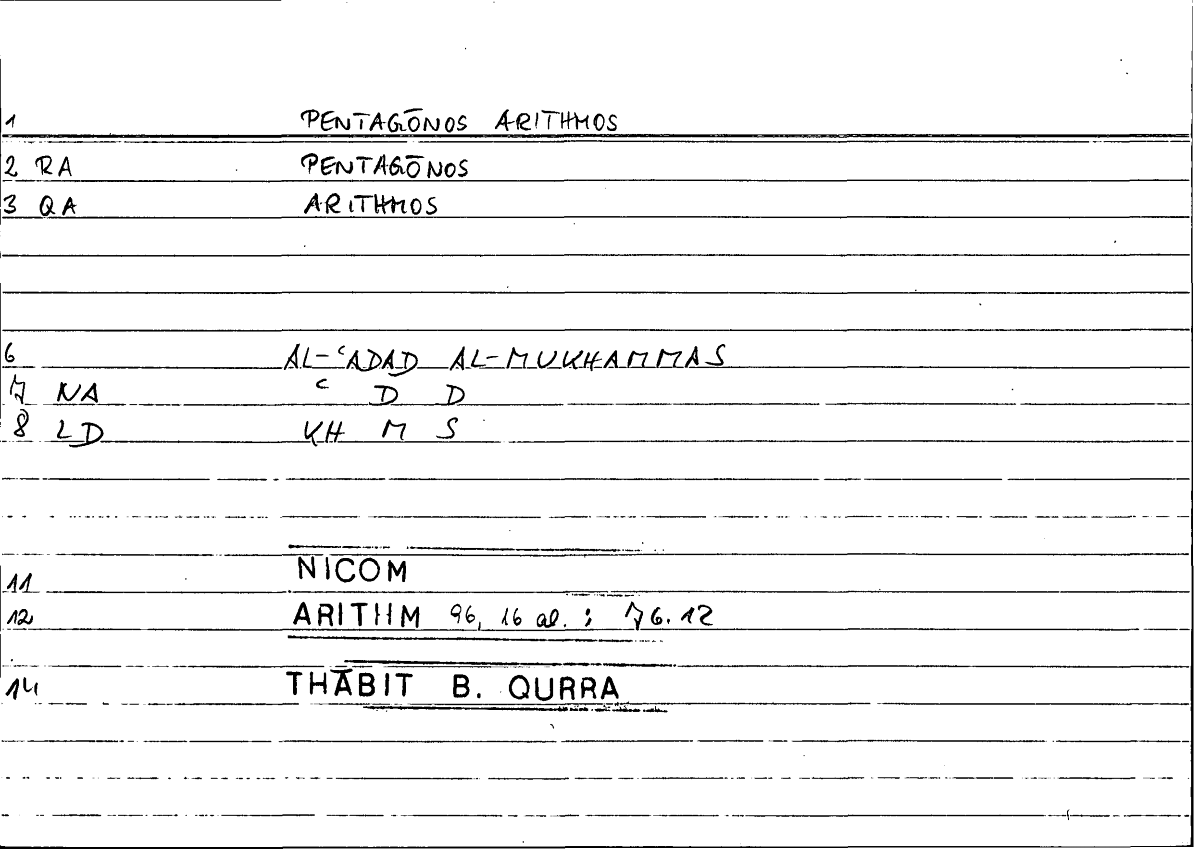 1 PENTAGŌNOS ARITHMOS
2 RA PENTAGŌNOS
3 QA ARITHMOS
6 AL-ʿADAD AL-MUKHAMMAS
7 NA ʿ D D
8 LD KH M S
11 NICOM
12 ARITHM 96, 16 al. ; 76.12
14 THĀBIT B. QURRA